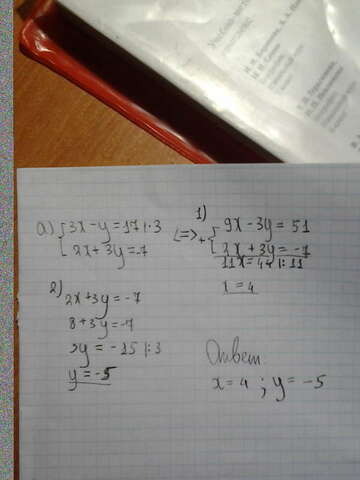 а) { 3x-y=17 |·3
2x+3y=-7
<=>
1)
+ { 9x-3y=51
2x+3y=-7
11x=44 |:11
x=4
2)
2x+3y=-7
8+3y=-7
3y=-15 |:3
y=-5
Ответ.
x=4 ; y=-5